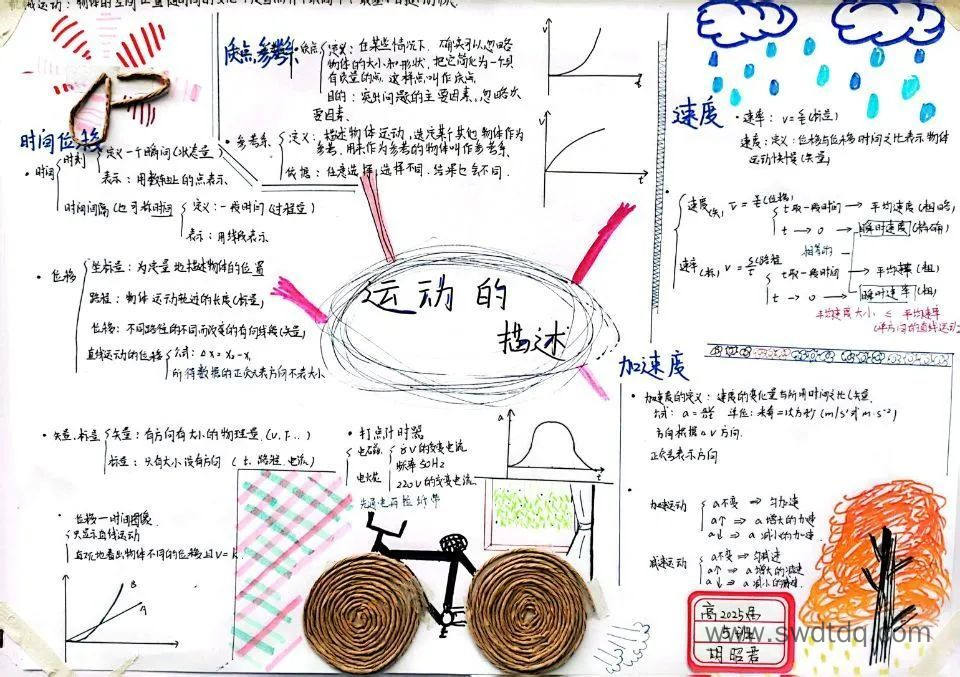 质点,参考系
质点
定义：在某些情况下，确实可以忽略
物体的大小和形状，把它简化为一个具
有质量的点，这样点叫作质点
目的：突出问题的主要因素，忽略次
要因素.
参考系
定义：描述物体运动，选定某个其他物体作为
参考，用来作为参考的物体叫作参考系
依据：任意选择，选择不同，结果也会不同.
v
t
v
t
时间位移
时间
时刻
定义一个瞬间(状态量)
表示：用数轴上的点表示.
时间间隔(也可称时间)
定义：一段时间(过程量)
表示：用线段表示
位移
坐标量：为定量地描述物体的位置
路程：物体运动轨迹的长度(标量)
位移：不同路径的不同而改变的有向线段(矢量)
直线运动的位移
公式：Δx = x₂ - x₁
所得数据的正负代表方向不表大小
运动的
描述
速度
速率：
(标量)
速度：定义：位移与
时间之比表示物体
运动快慢(矢量)
速度(矢)
(位移)
t取一段时间 → 平均速度(粗略)
t → 0 → 瞬时速度(精确)
相等的
速率(标) v =
路程
t取一段时间 → 平均速率(粗)
t → 0 → 瞬时速率(粗)
平均速度大小 ≤ 平均速率
(单方向的直线运动)
加速度
加速度的定义：速度的变化量与所用时间之比(矢量)
公式：a =
单位：米每二次方秒 (m/s²或m·s⁻²)
方向根据ΔV方向.
正负表示方向
加速运动
a不变 ⇒ 匀加速
a↑ ⇒ a增大的加速
a↓ ⇒ a减小的加速
减速运动
a不变 ⇒ 匀减速
a↑ ⇒ a增大的减速
a↓ ⇒ a减小的减速
矢量,标量
矢量：有方向有大小的物理量.
标量：只有大小没有方向 (t, 路程, 电流)
打点计时器
电磁
的交变电流
频率50Hz
电火花
220V的交变电流
先通电再拉纸带
a
t
位移一时间图像
只显示直线运动
直观地看出物体不同的位移且V=k.
B
A
高2025届
5班
胡昭君
www.swdtdq.com